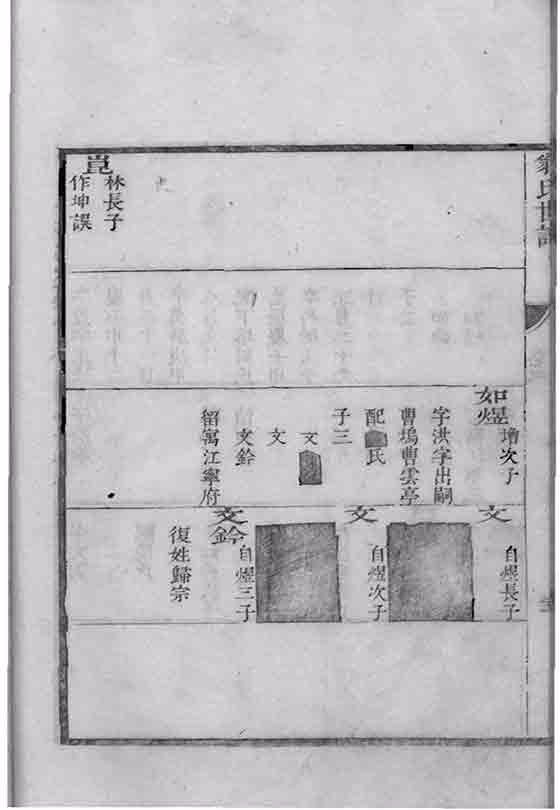 氏世譜
崑
林長子
作坤誤
如煜
增次子
字洪字出嗣
曹塢曹雲亭
配
氏
子三
文
文
文鈐
留寓江寧府
文
自煜長子
文
自煜次子
文鈐
自煜三子
復姓歸宗